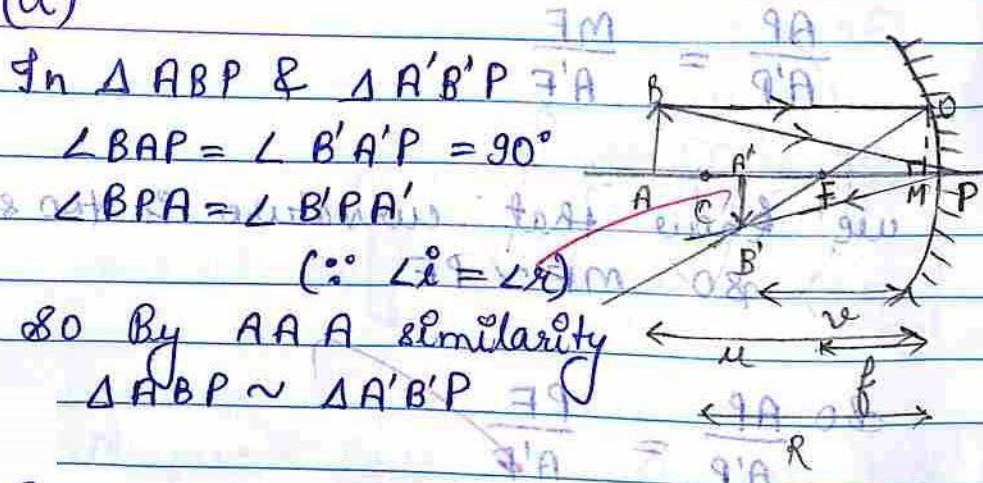 (a)
In Δ ABP & Δ A'B'P
∠BAP = ∠ B'A'P = 90°
∠BPA = ∠ B'PA'
(∵ ∠i = ∠r)
So By AAA similarity
Δ ABP ~ Δ A'B'P
B
O
A
C
A'
F
M
P
B'
v
u
f
R